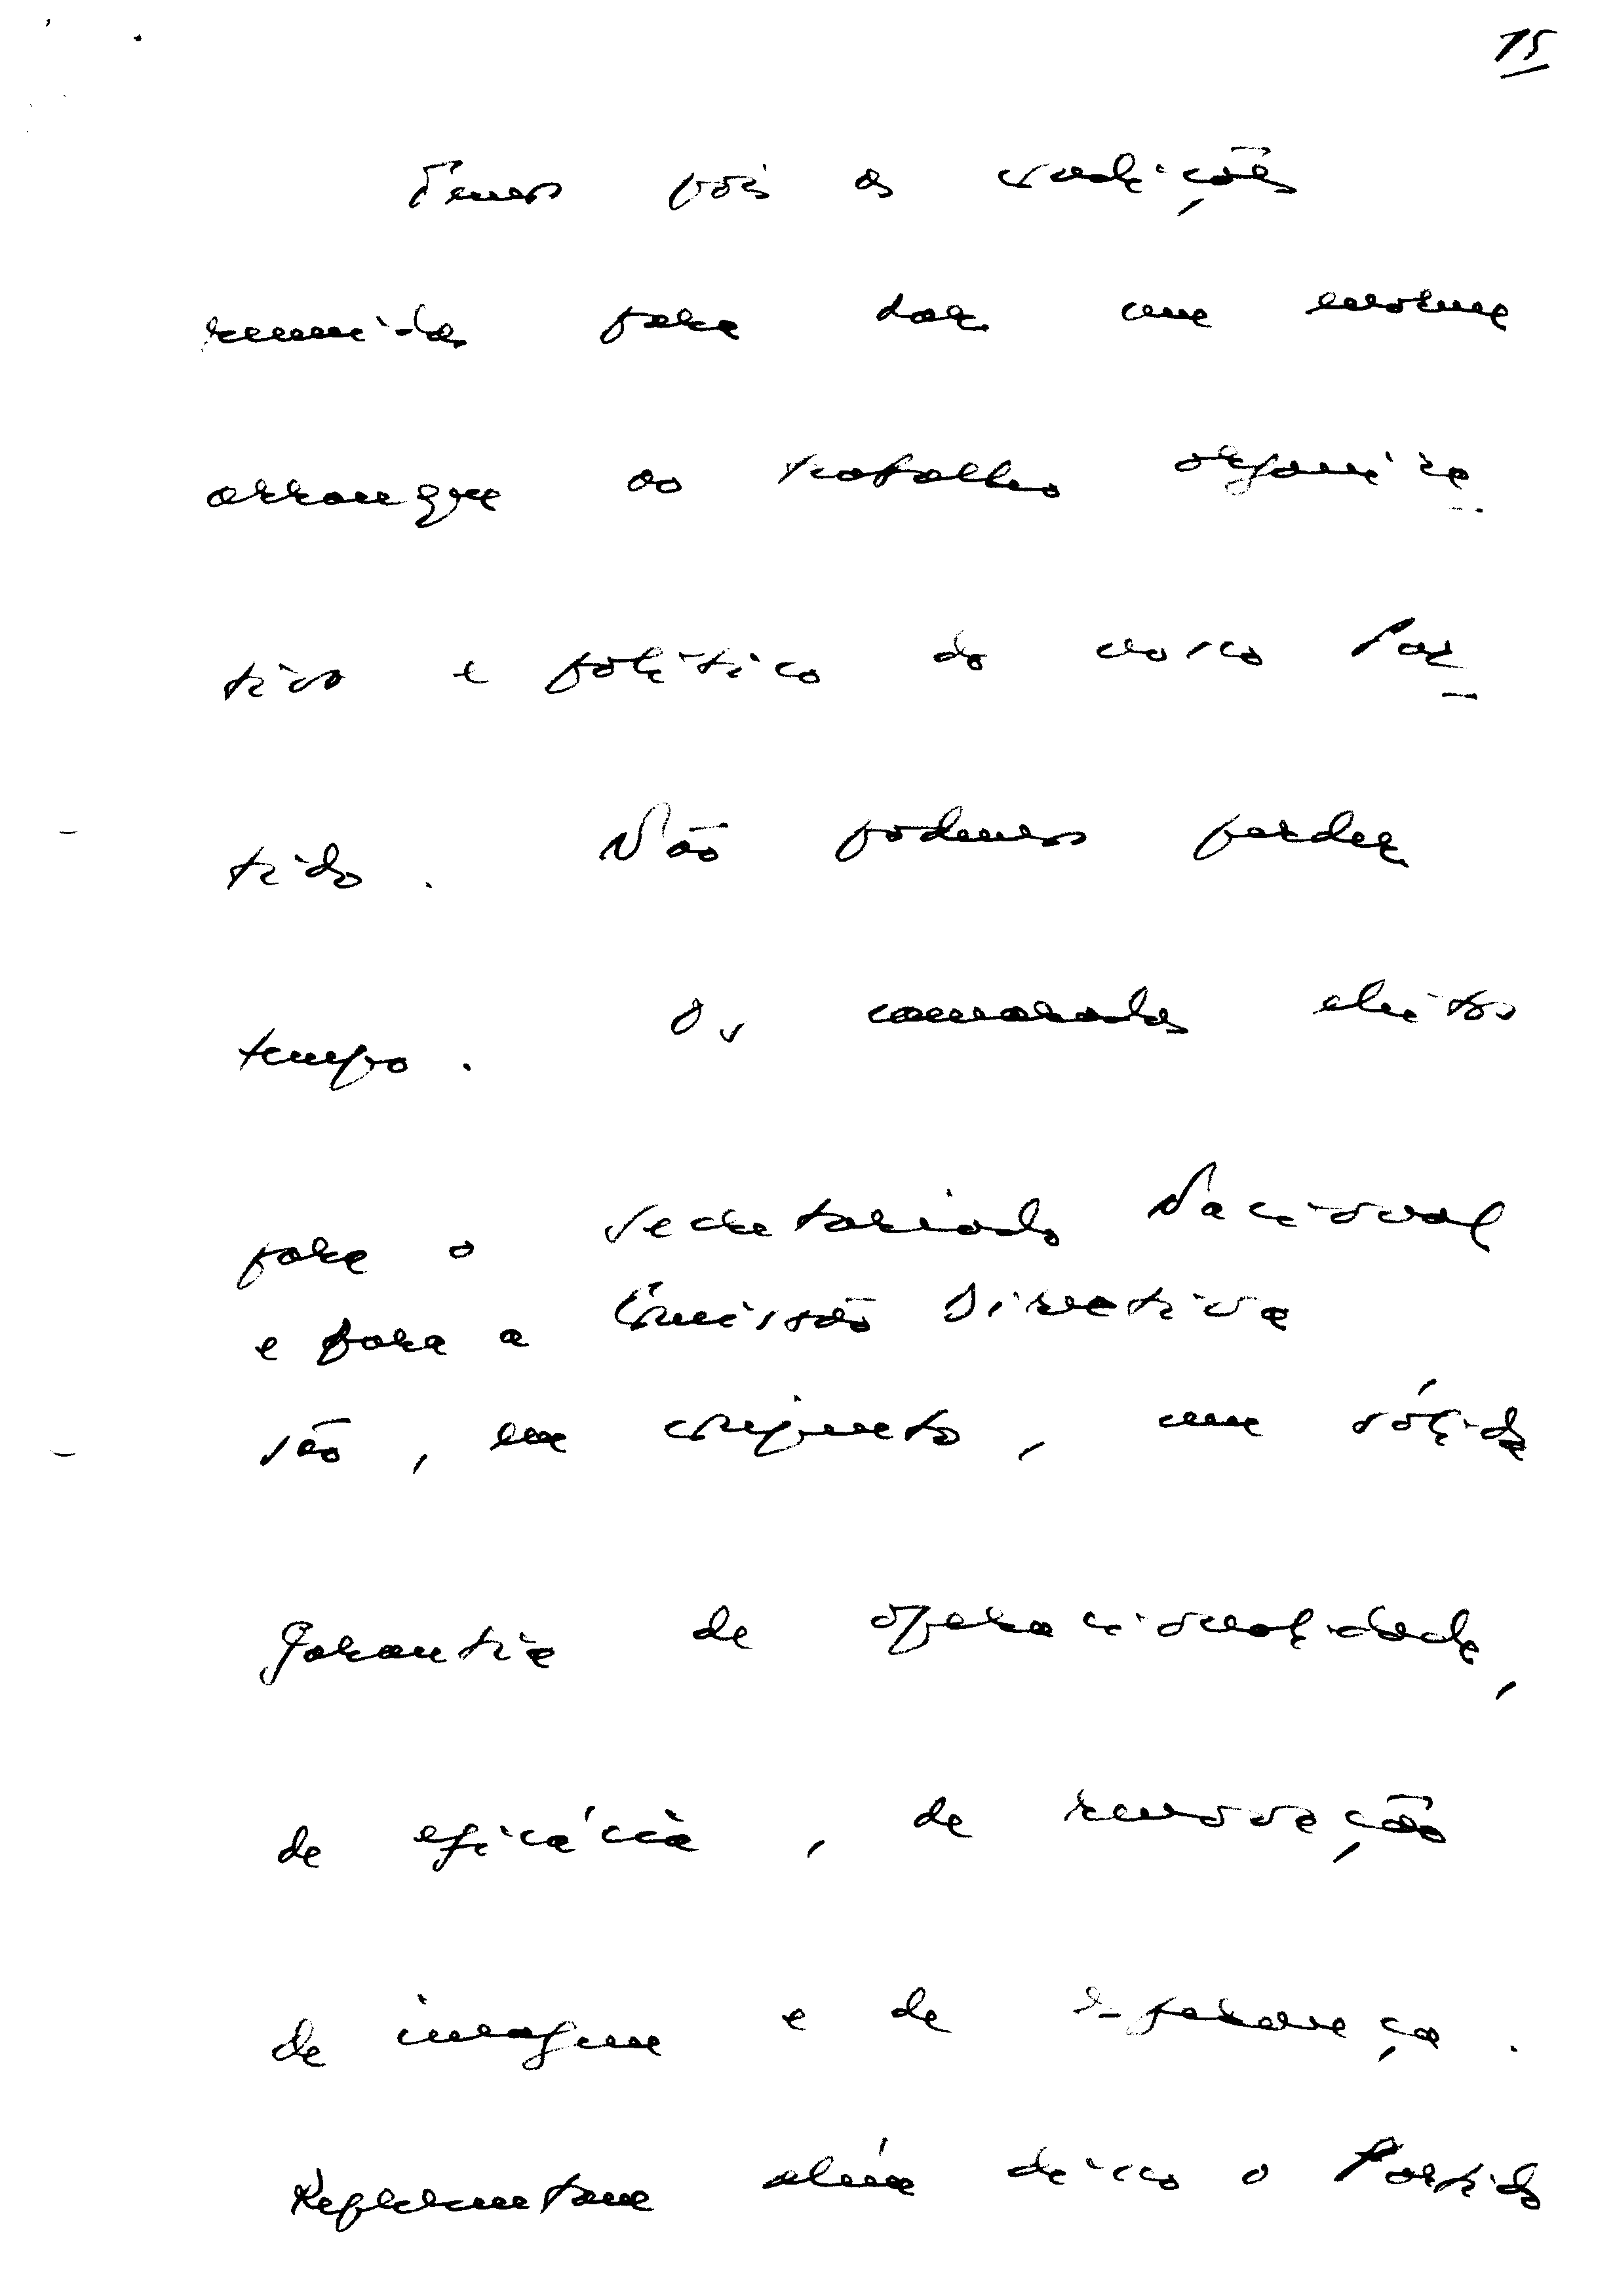 15
Temos pois as condições
reunidas para dar um enorme
arranque ao trabalho organiza-
tivo e político do nosso Par-
tido. Não podemos perder
tempo. Os camaradas eleitos
para o Secretariado Nacional
e para a Comissão Directiva
são, em conjunto, uma sólida
garantia de operacionalidade,
de eficácia, de renovação
de imagem e de esperança.
Representam além disso o Partido